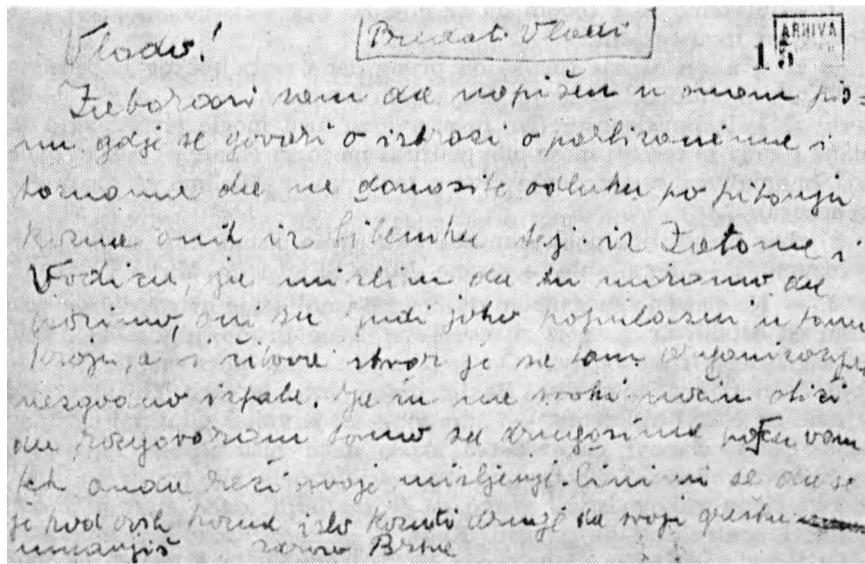 Vlado!
Bredati Vlasi
ARHIVA
15
Zaboravi sam da napišen u onom pis-
mu gdje se govori o istrazi o partizanima i
tamo da ne donosite odluku po pitanju
kazna onih iz Šibenika tj. iz Zatona i
Vodica, je mislim da tu moramo da
pazimo, oni su ljudi jako popularni u tamu
kraju, a i čitava stvar je sa tom organizacijom
nezgodno ispala. Ja ću na svaki način otići
da razgovaram tamo sa drugovima pa ću vam
tek onda reći svoje mišljenje. Čini mi se da se
je kod ovih kazna islo kazniti druge da svoju grešku
umanjiš zdravo Brne